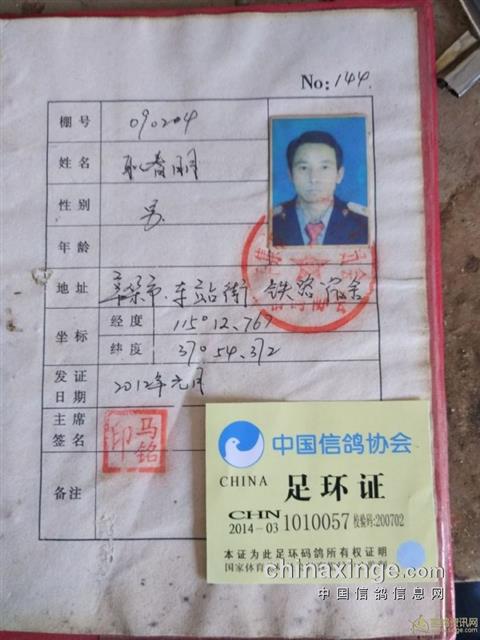 No: 144.
棚号 090204
姓名 耿春明
性别 男.
年龄
地址 辛集市.车站街 铁路宿舍
坐标 经度 115°12.767
纬度 37°54.372
发证日期 2012年元月
主席签名 马铭印
备注
中国信鸽协会
CHINA 足环证
CHN
2014-03 1010057 校验码:200702
本证为此足环码鸽所有权证明
国家体育
chinaxinge.com
中国信鸽信息网